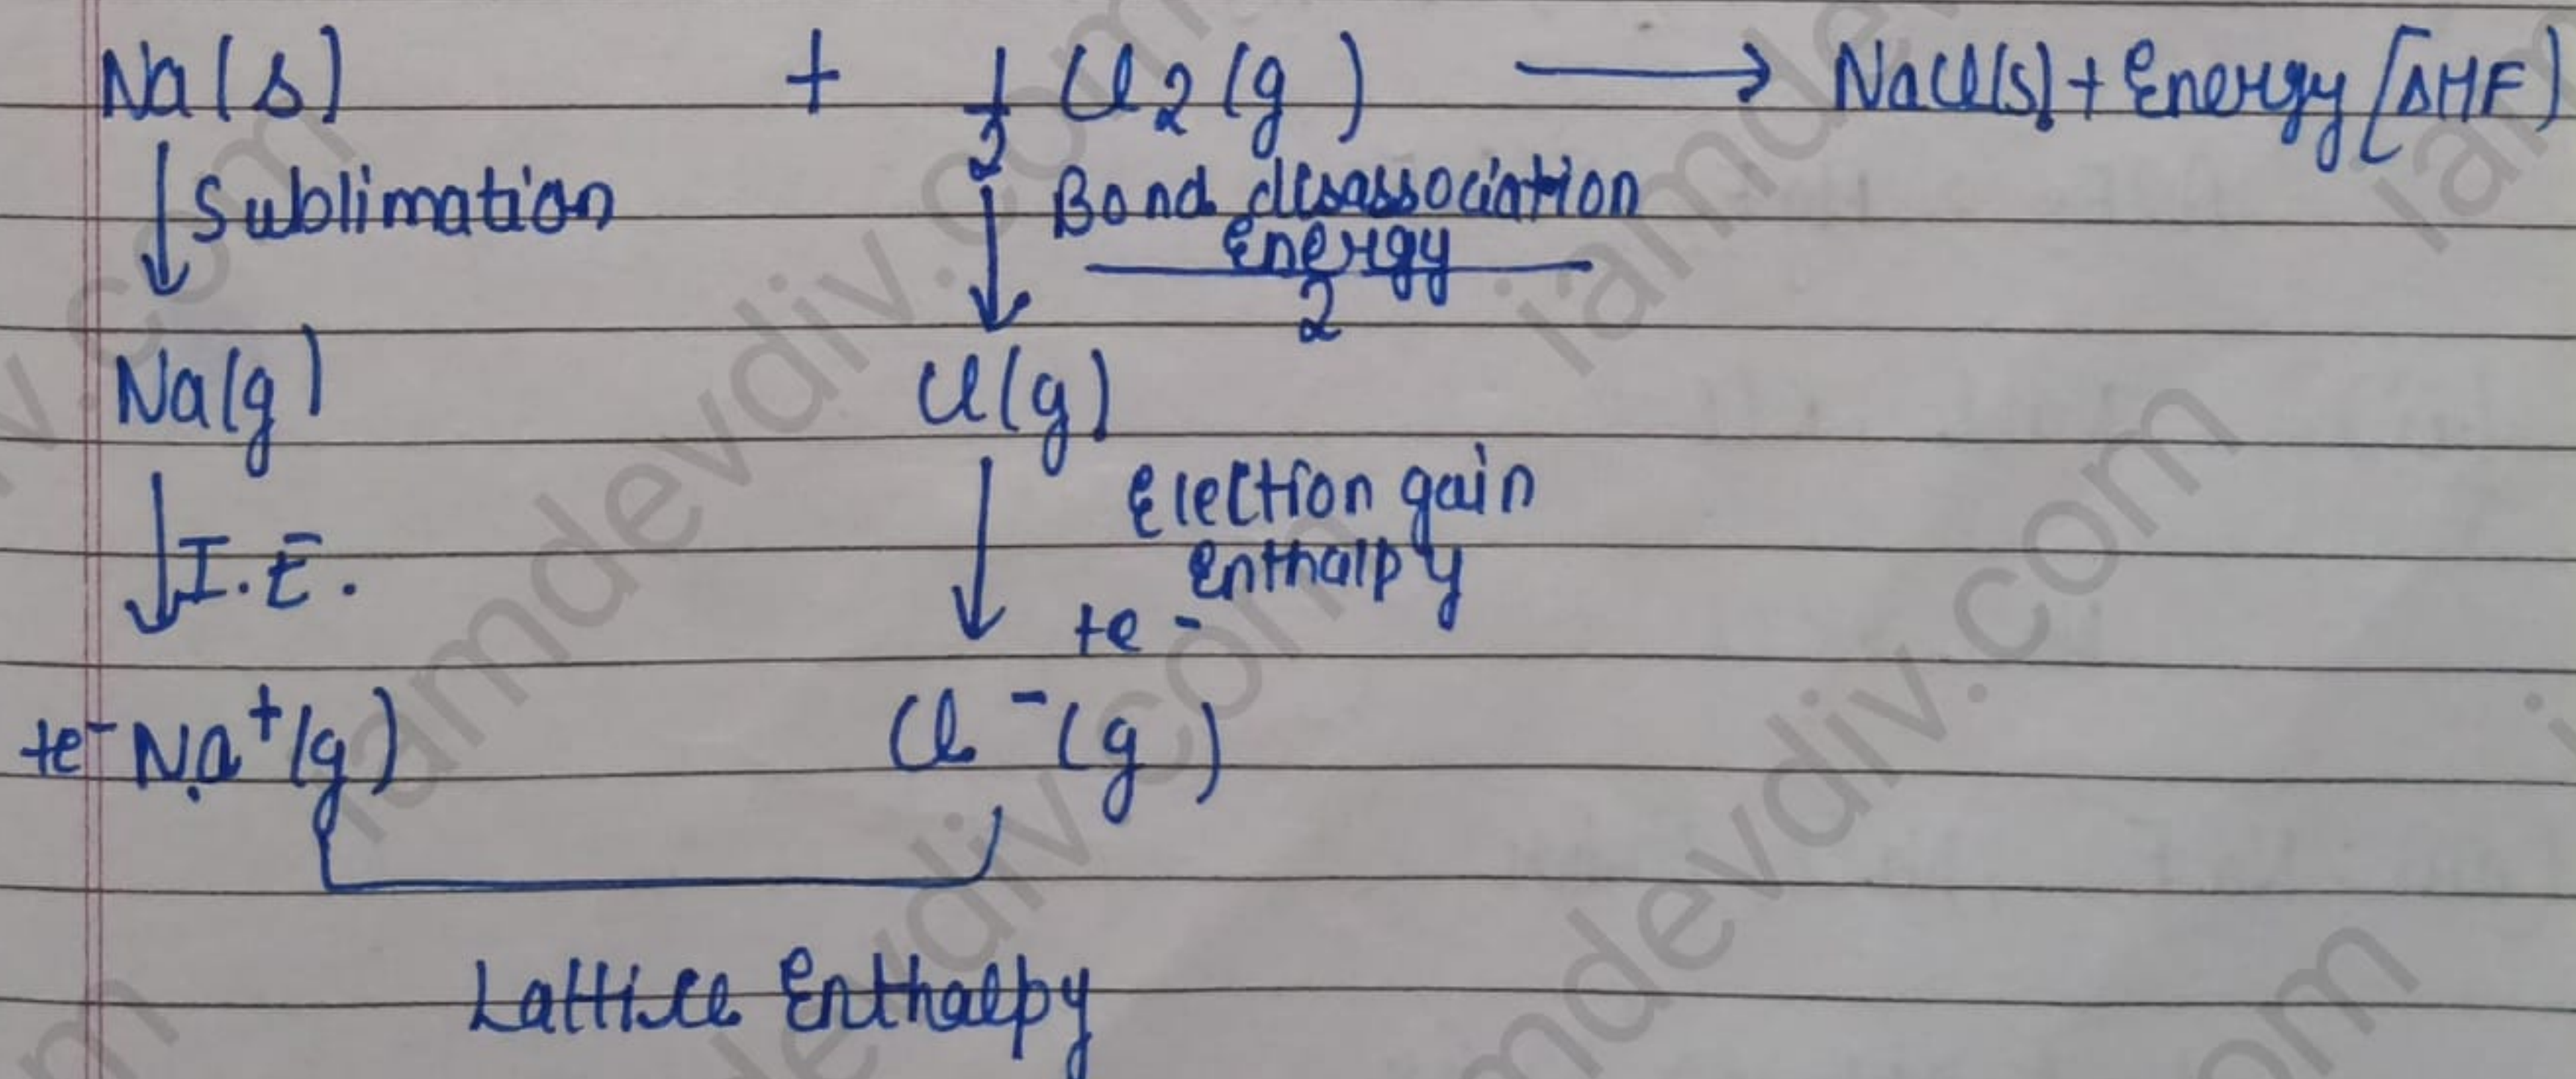 Na(s) + 1/2 Cl2(g) → NaCl(s) + Energy [ΔHF)
↓ Sublimation ↓ Bond disassociation
Energy
2
Na(g) Cl(g)
↓ I.E. ↓ Election gain
Enthalpy
+e-
+e- Na+(g) Cl-(g)
Lattice Enthalpy
iamdevdiv.com